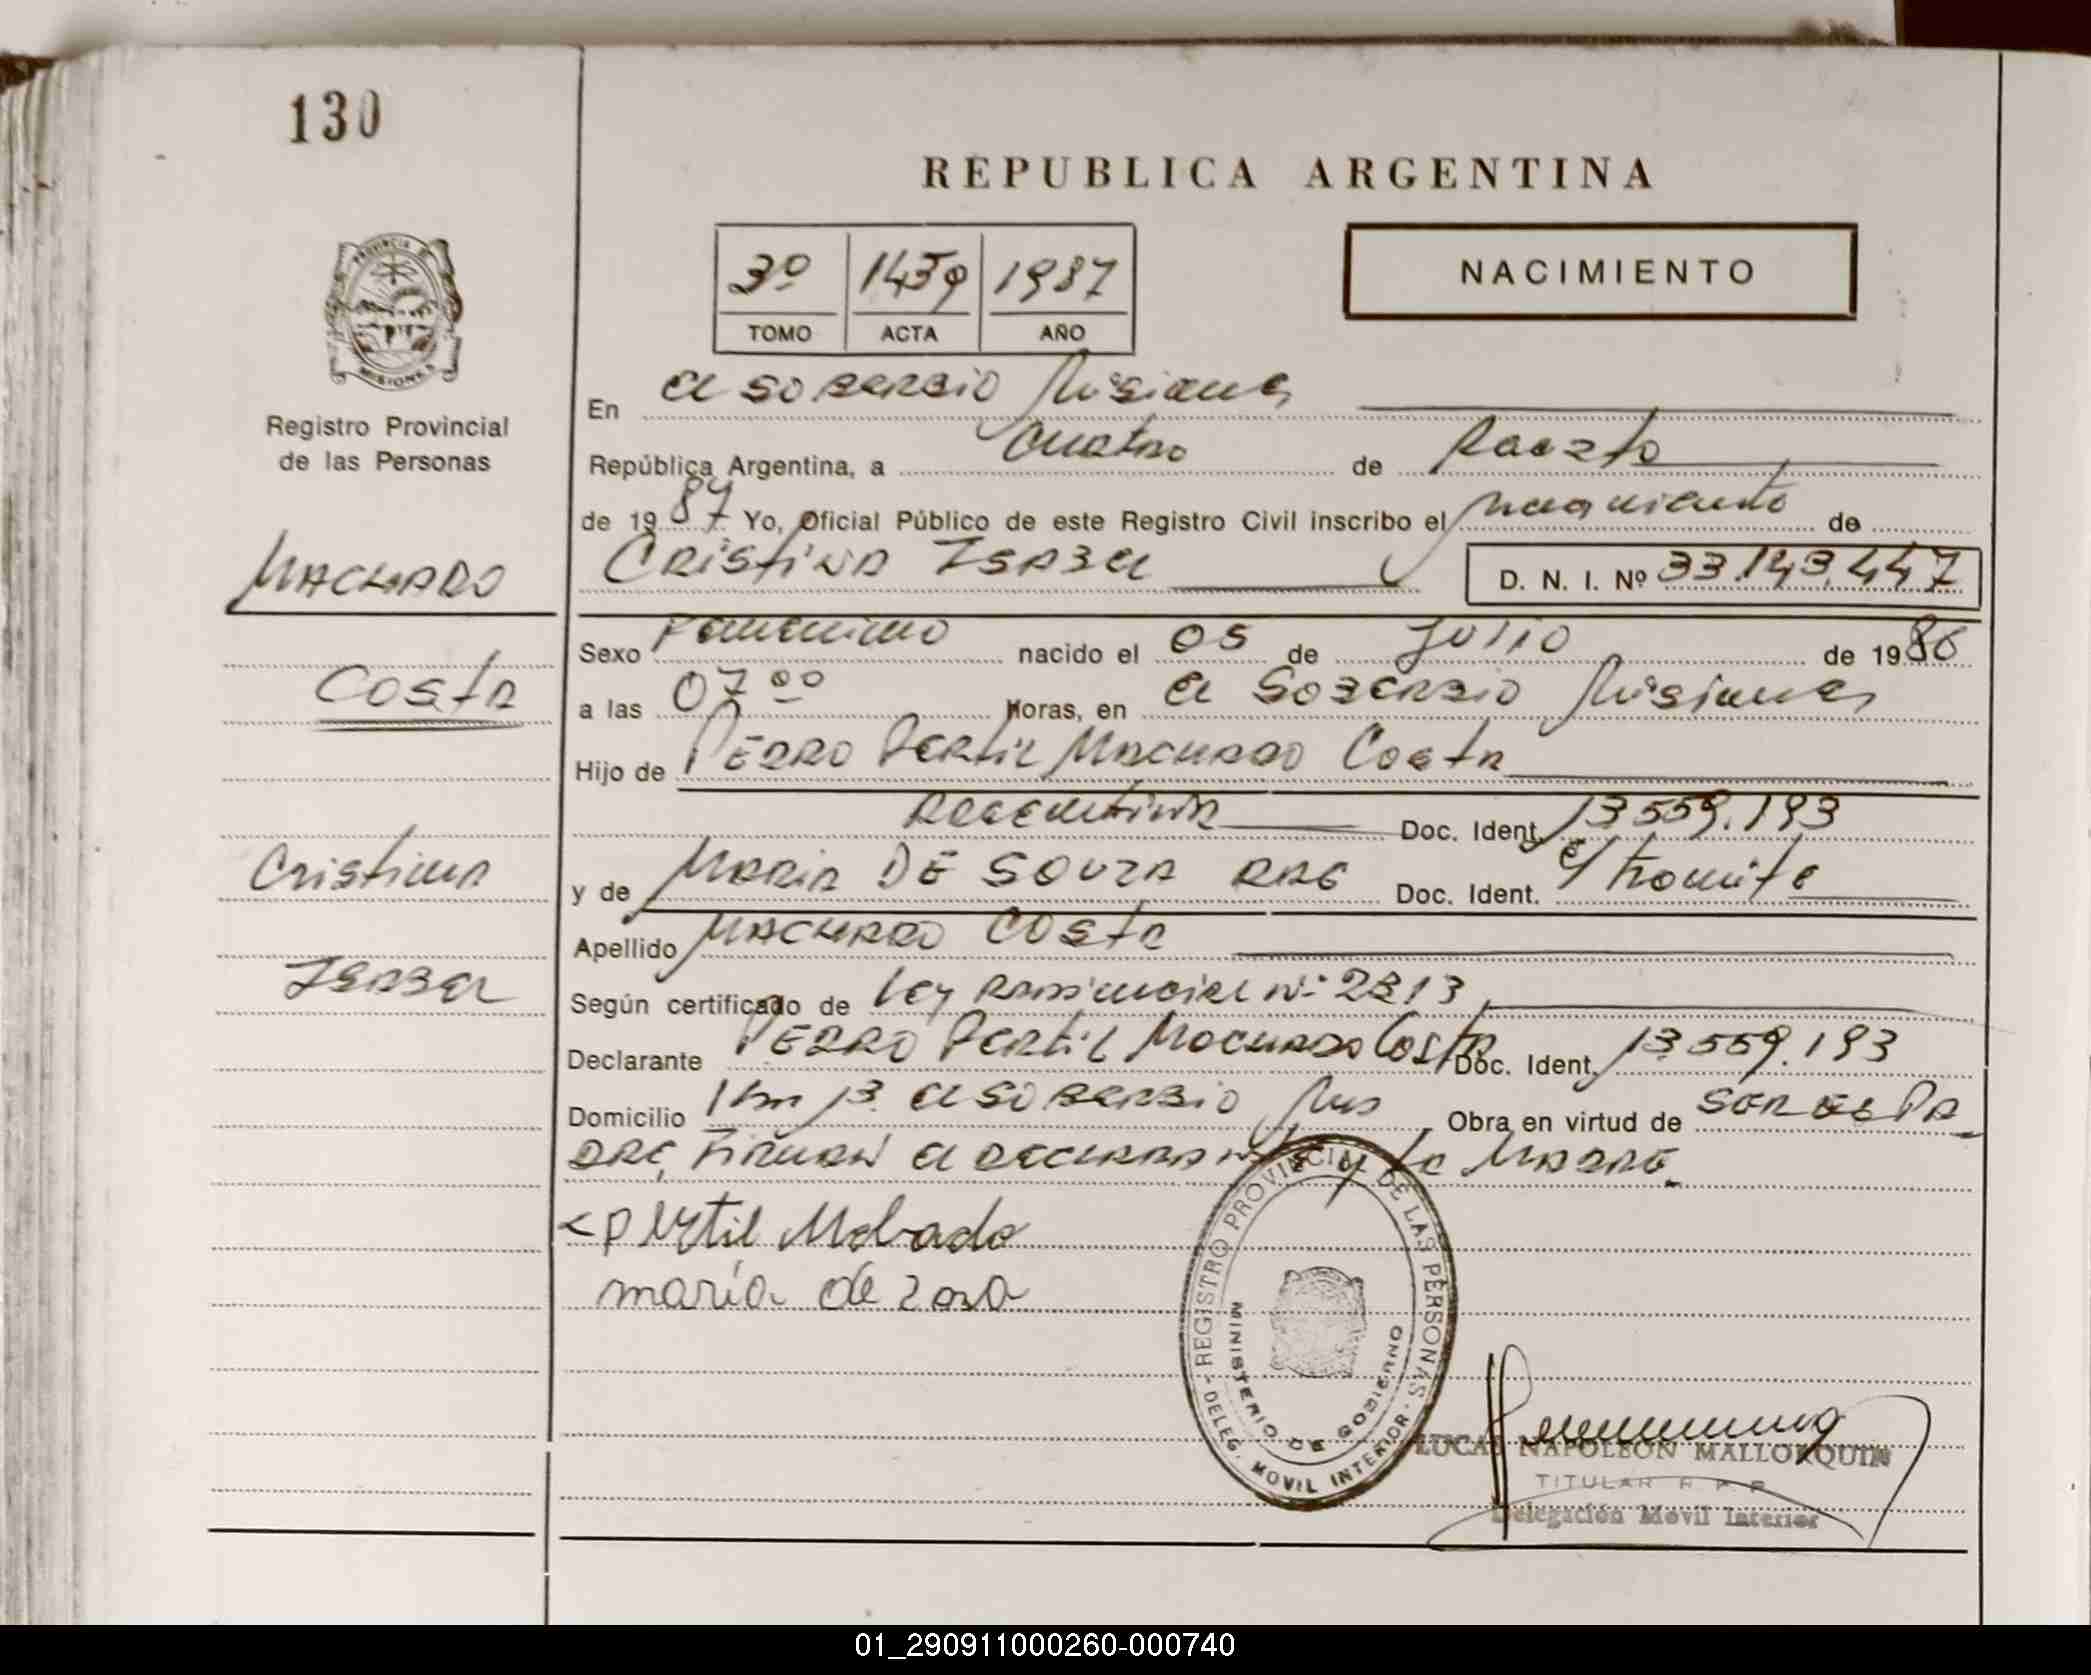 130
REPUBLICA ARGENTINA
3º 1439 1987
TOMO ACTA AÑO
NACIMIENTO
PROVINCIA DE
MISIONES
Registro Provincial
de las Personas
En El SOBERBIO Misiones
República Argentina, a Cuatro de Agosto
de 1987 Yo, Oficial Público de este Registro Civil inscribo el de
CRISTINA ISABEL
D. N. I. Nº 33.143.447
MACHADO
Costa
Cristina
ISABEL
Sexo Femenino nacido el 05 de Julio de 1986
a las 07 00 Horas, en El SOBERBIO Misiones
Hijo de PEDRO Pertil MACHADO Costa
ARGENTINA Doc. Ident. 13.559.193
y de MARIA DE SOUZA Doc. Ident. e/ tramite
Apellido MACHADO COSTA
Según certificado de Ley Provincial Nº 2313
Declarante PEDRO Pertil MACHADO Costa Doc. Ident. 13.559.193
Domicilio El SOBERBIO Mis Obra en virtud de SER EL PA
DRE, FIRMAN El DECLARANTE y la MADRE.
maría de
REGISTRO PROVINCIAL DE LAS PERSONAS - DELEG. MOVIL INTERIOR -
MINISTERIO DE GOBIERNO
LUCAS NAPOLEON MALLORQUIN
TITULAR R P P
Delegación Movil Interior
01_290911000260-000740